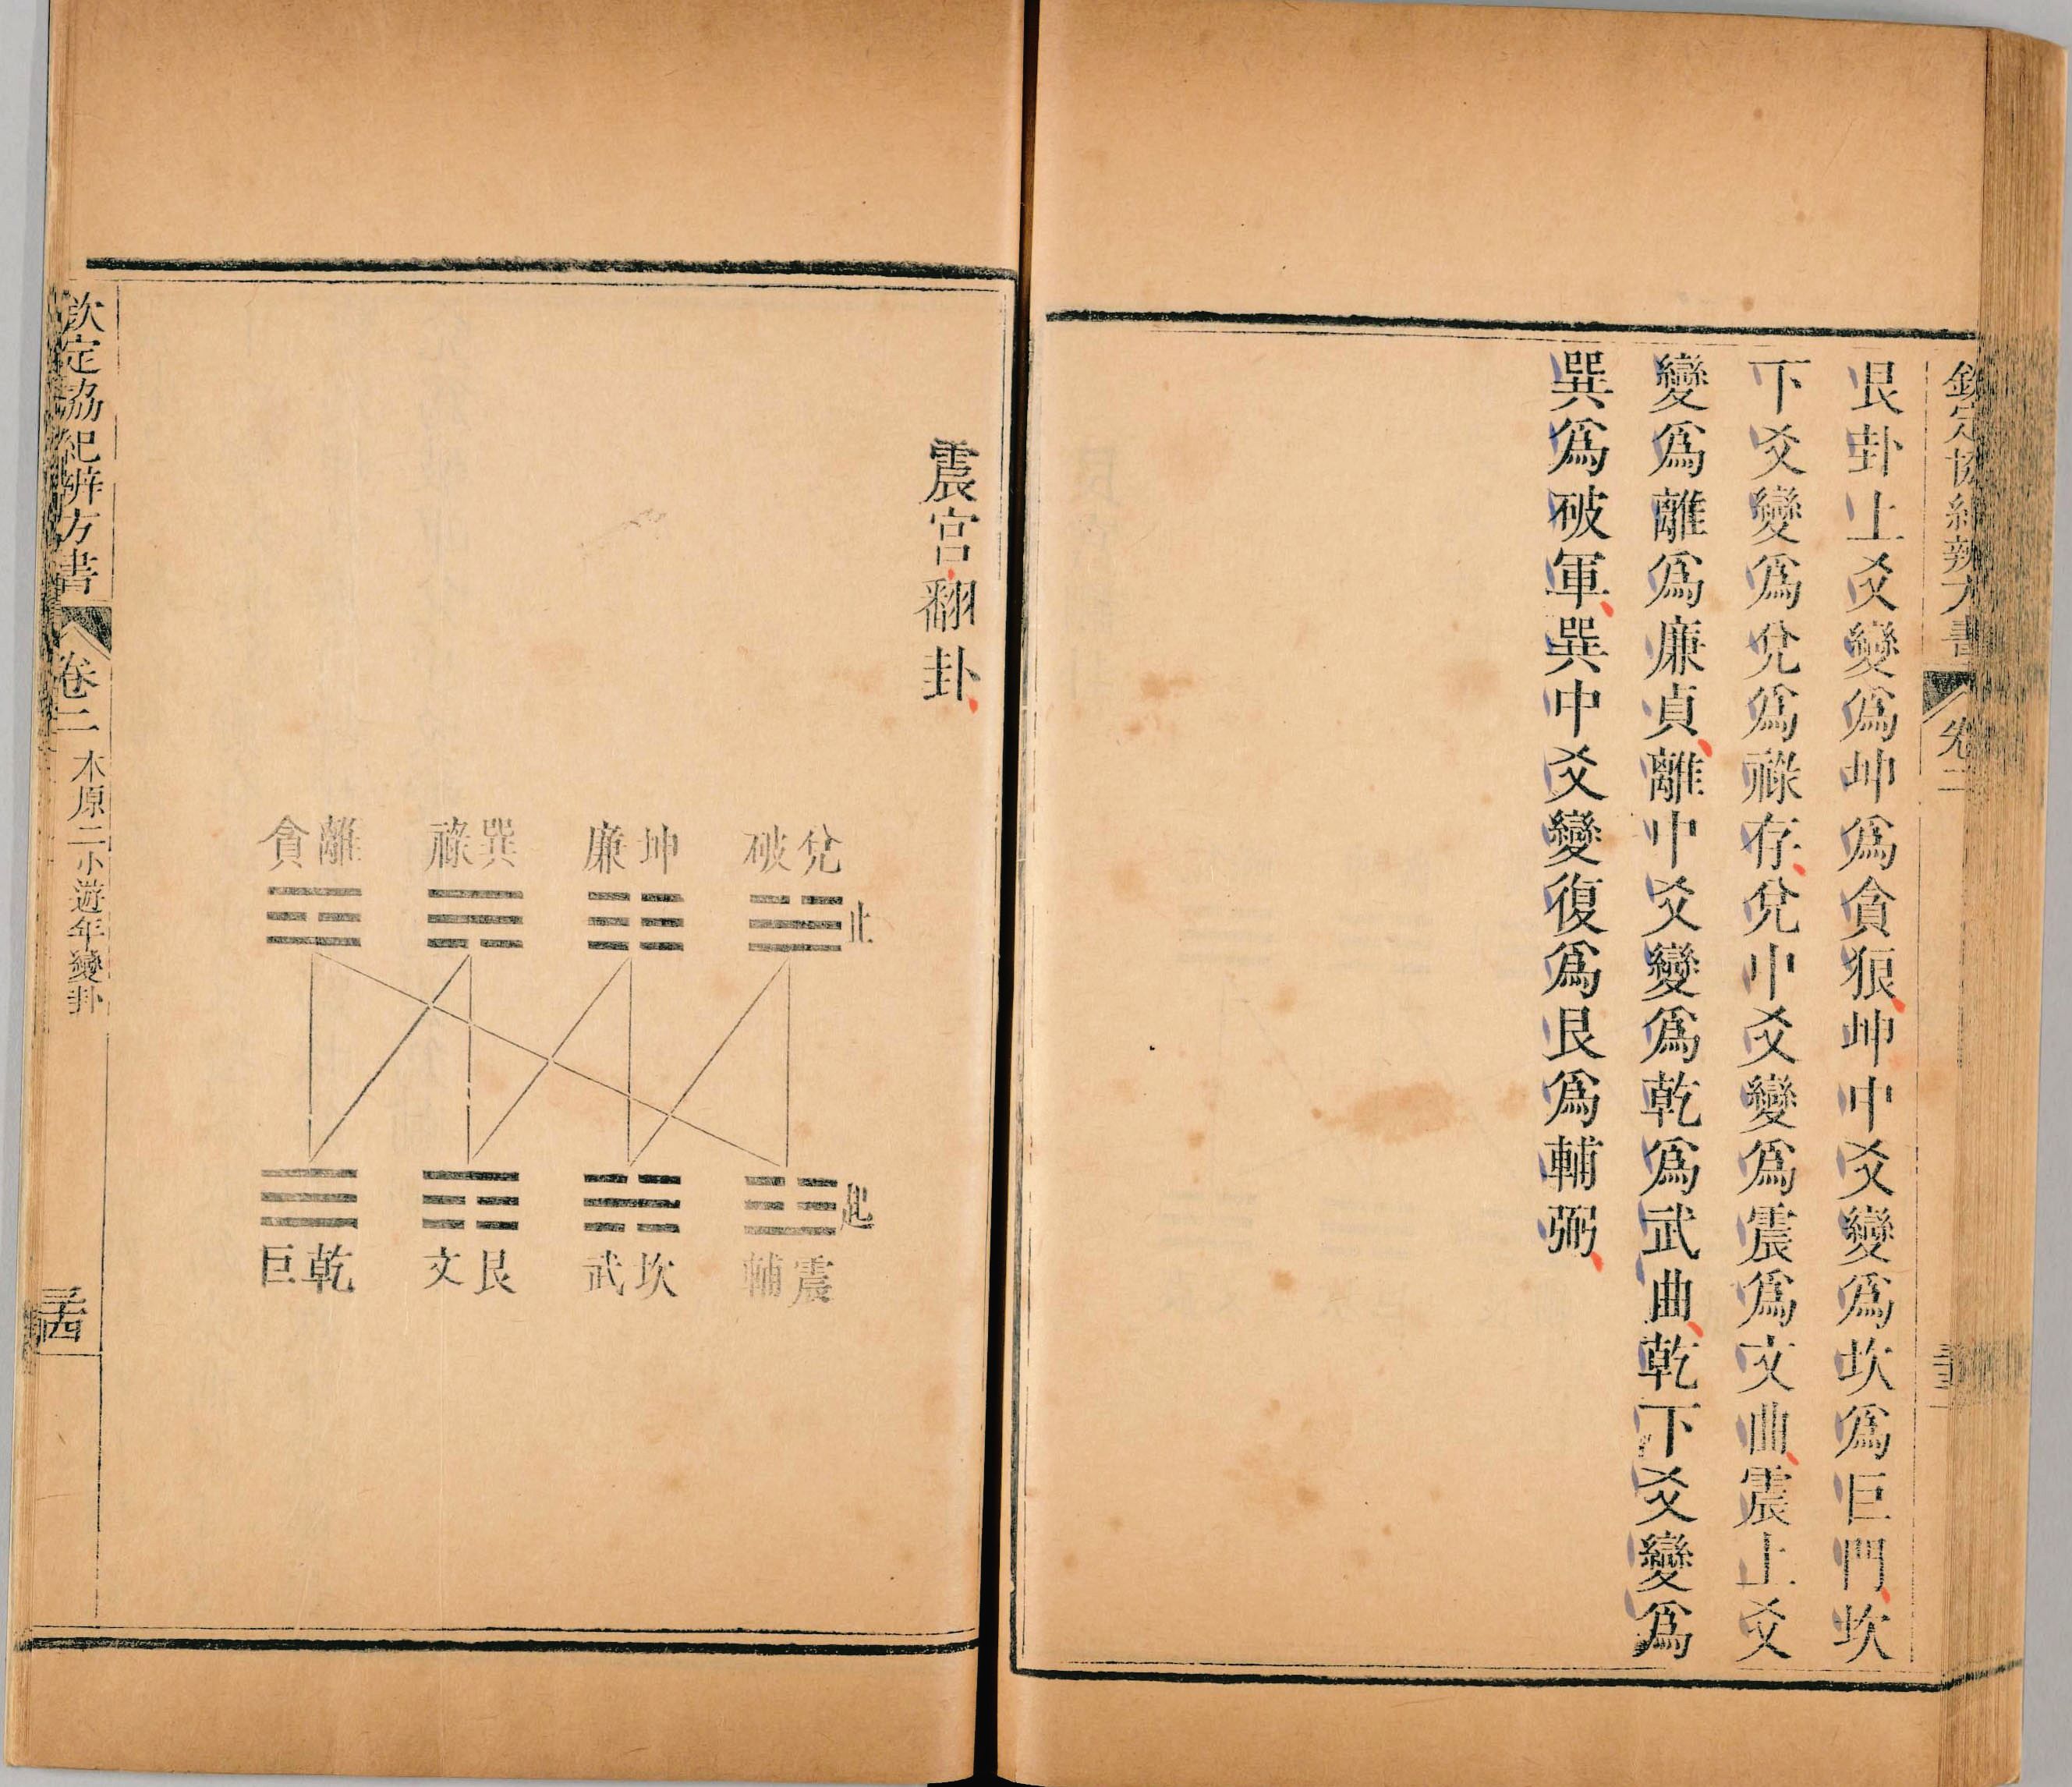 欽定協紀辨方書 卷二
艮卦上爻變爲坤爲貪狼坤中爻變爲坎爲巨門坎
下爻變爲兌爲祿存兌中爻變爲震爲文曲震上爻
變爲離爲廉貞離中爻變爲乾爲武曲乾下爻變爲
巽爲破軍巽中爻變復爲艮爲輔弼
震宮翻卦
止
兌破
坤廉
巽祿
離貪
起
震輔
坎武
艮文
乾巨
欽定協紀辨方書 卷二 本原二 小遊年變卦 三十四